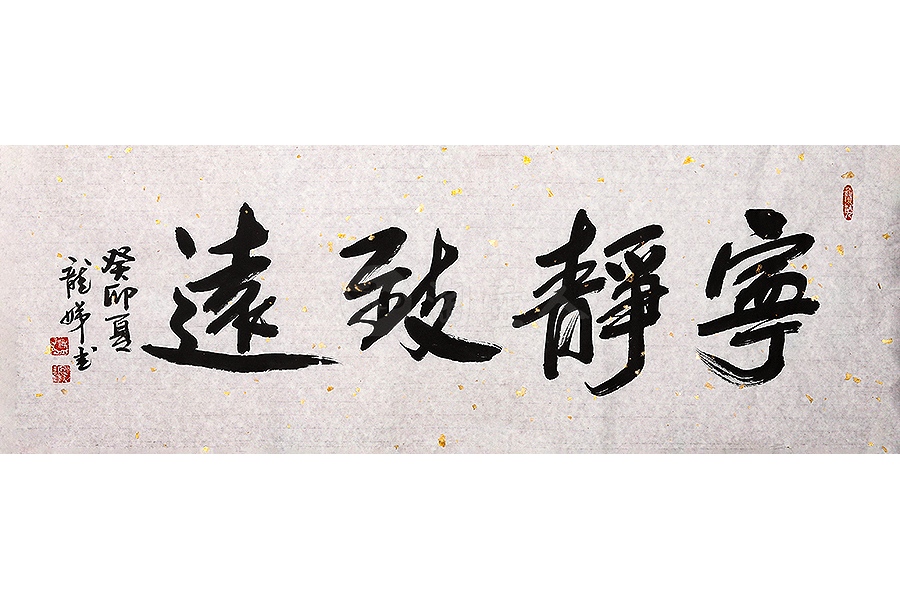 寧靜致遠
癸卯夏
龍娣書